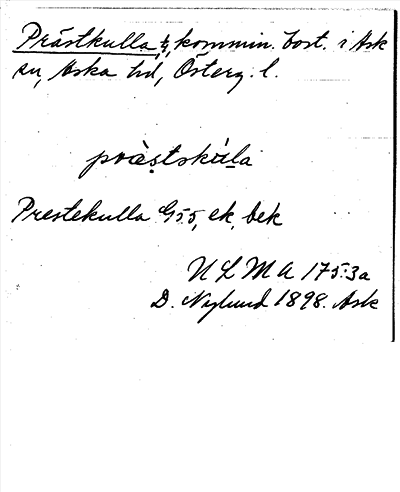 Prästkulla, kommin. bost. i Ask
sn, Aska hd, Österg. l.
Prestekulla G55, ek, bek
ULMA 175:3a
D. Nylund 1898. Ask